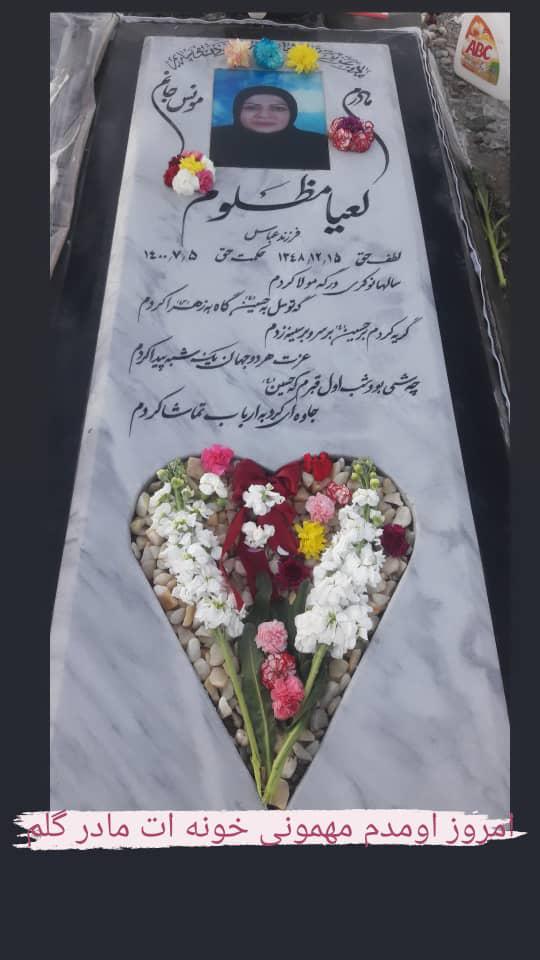 مادرم
مونس جانم
لعیا مظلوم
فرزند عباس
لطف حق ۱۳۴۸،۱۲،۱۵ حکمت حق ۱۴۰۰،۷،۵
سالها نوکری درگه مولا کردم
گه توسل به حسین گاه به زهرا کردم
گریه کردم بر حسین بر سر و بر سینه زدم
عزت هر دو جهان یک شبه پیدا کردم
چه شبی بود شب اول قبرم که حسین
جلوه ای کرد به ارباب تماشا کردم
ABC
امروز اومدم مهمونی خونه ات مادر گلم